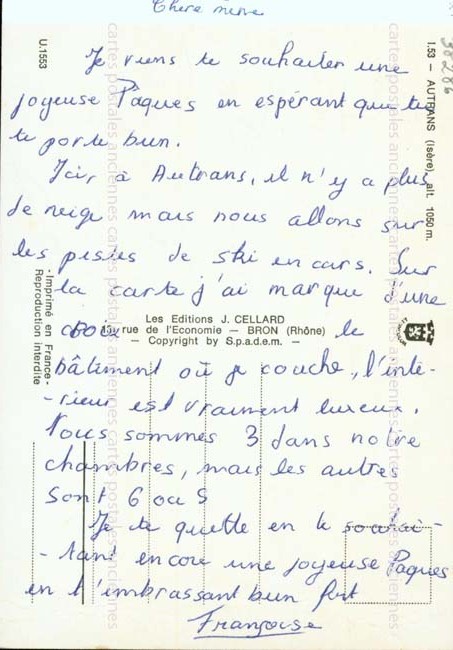 Chère mère
Je viens te souhaiter une
joyeuse Pâques en espérant que tu
te porte bien.
Ici, à Autrans, il n'y a plus
de neige mais nous allons sur
les pistes de ski en cars. Sur
la carte j'ai marqué d'une
croix le
bâtiment où je couche, l'inté-
-rieur est vraiment luxeux.
Nous sommes 3 dans notre
chambres, mais les autres
sont 6 ou 5
Je te quette en te souhai-
-tant encore une joyeuse Pâques
en t'embrassant bien fort
Françoise
U.1553
1.53 — AUTRANS (Isère), alt. 1050 m.
38286
Les Editions J. CELLARD
rue de l'Economie — BRON (Rhône)
— Copyright by S.p.a.d.e.m. —
- Imprimé en France -
Reproduction interdite
cartes postales anciennes cartes postales anciennes cartes postales anciennes